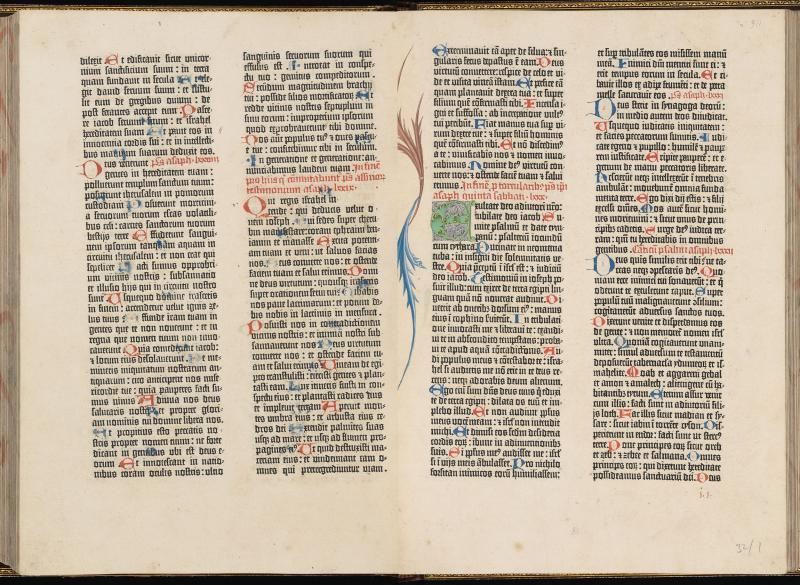 dilexit Et edificavit sicut unicor-
nium sanctificium suum: in terra
quam fundavit in secula Et ele-
git david servum suum: et sustu-
lit eum de gregibus ovium: de
post fetantes accepit eum Pasce-
re iacob servum suum: et israhel
hereditatem suam Et pavit eos in
innocentia cordis sui: et in intellecti-
bus manuum suarum deduxit eos.
gentes in hereditatem tuam:
polluerunt templum sanctum tuum:
posuerunt iherusalem in pomorum
custodiam Posuerunt morticina
servorum tuorum escas volatili-
bus celi: carnes sanctorum tuorum
bestijs terre Effuderunt sangui-
nem ipsorum tanquam aquam in
circuitu iherusalem: et non erat qui
sepeliret Facti sumus opprobri-
um vicinis nostris: subsannatio
et illusio hijs qui in circuitu nostro
sunt Usquequo domine irasceris
in finem: accendetur velut ignis
zelus tuus Effunde iram tuam in
gentes que te non noverunt: et in
regna que nomen tuum non invo-
caverunt Quia comederunt iacob:
et locum eius desolaverunt Ne me-
mineris iniquitatum nostrarum an-
tiquarum: cito anticipent nos mise-
ricordie tue: quia pauperes facti su-
mus nimis Adiuva nos deus
salutaris noster et propter glori-
am nominis tui domine libera nos:
et propitius esto peccatis no-
stris propter nomen tuum: ne forte
dicant in gentibus ubi est deus e-
orum Et innotescat in natio-
nibus coram oculis nostris: ultio
sanguinis servorum tuorum qui
effusus est Introeat in conspe-
ctu tuo: gemitus compeditorum.
Secundum magnitudinem brachij
tui: posside filios mortificatorum Et
redde vicinis nostris septuplum in
sinu eorum: improperium ipsorum
quod exprobraverunt tibi domine.
Nos autem populus tuus et oves pascue
tue: confitebimur tibi in seculum
In generatione et generatione: an-
nunciabimus laudem tuam
Qui regis israhel in-
tende: qui deducis velut o-
vem ioseph Qui sedes super cheru-
bin manifestare: coram ephraim ben-
iamin et manasse Excita potenti-
am tuam et veni: ut salvos facias
nos Deus converte nos: et ostende
faciem tuam et salvi erimus Domi-
ne deus virtutum: quousque irasceris
super orationem servi tui Cibabis
nos pane lacrimarum: et potum da-
bis nobis in lacrimis in mensura
Posuisti nos in contradictionem
vicinis nostris: et inimici nostri sub-
sannaverunt nos Deus virtutum
converte nos: et ostende faciem tu-
am et salvi erimus Vineam de egi-
pto transtulisti: eiecisti gentes et plan-
tasti eam
spectu eius: et plantasti radices eius
et implevit terram Operuit mon-
tes umbra eius: et arbusta eius ce-
dros dei Extendit palmites suos
usque ad mare: et usque ad flumen pro-
pagines eius Ut quid destruxisti ma-
ceriam eius: et vindemiant eam o-
mnes qui pretergrediuntur viam.
Exterminavit eam aper de silva: et sin-
gularis ferus depastus est eam Deus
virtutum convertere: respice de celo et vi-
de et visita vineam istam Et perfice eam
quam plantavit dextera tua: et super
filium quem confirmasti tibi Incensa i-
gni et suffossa: ab increpatione vultus
tui peribunt Fiat manus tua super vi-
rum dextere tue: et super filium hominis
quem confirmasti tibi Et non discedimus
a te: vivificabis nos et nomen tuum
invocabimus Domine deus virtutum con-
verte nos: et ostende faciem tuam et salvi
erimus
Exultate deo adiutori nostro:
iubilate deo iacob Su-
mite psalmum et date tym-
panum: psalterium iocundum
cum cythara Buccinate in neomenia
tuba: in insigni die solemnitatis ve-
stre Quia preceptum in israhel est: et iudicium
deo iacob Testimonium in ioseph po-
suit illud: cum exiret de terra egipti lin-
guam quam non noverat audivit Di-
vertit ab oneribus dorsum eius: manus
eius in cophino servierunt In tribulati-
one invocasti me et liberavi te: exaudi-
vi te in abscondito tempestatis: proba-
vi te apud aquam contradictionis Au-
di populus meus et contestabor te: isra-
hel si audieris me non erit in te deus re-
cens: neque adorabis deum alienum.
Ego enim sum dominus deus tuus qui eduxi
te de terra egipti: dilata os tuum et im-
plebo illud Et non audivit populus
meus vocem meam: et israhel non intendit
michi Et dimisi eos secundum desideria
cordis eorum: ibunt in adinventionibus
suis Si populus meus audisset me: isra-
hel si in viis meis ambulasset Pro nichilo
forsitan inimicos eorum humiliassem:
et super tribulantes eos misissem manum
meam Inimici domini mentiti sunt ei: et
erit tempus eorum in secula Et ci-
bavit illos ex adipe frumenti: et de petra
melle saturavit eos
Deus stetit in synagoga deorum:
in medio autem deos diiudicat.
Usquequo iudicatis iniquitatem:
et facies peccatorum sumitis Iudi-
cate egeno et pupillo: humilem et paupe-
rem iustificate Eripite pauperem: et e-
genum de manu peccatoris liberate.
Nescierunt neque intellexerunt in tenebris
ambulant: movebuntur omnia funda-
menta terre Ego dixi dij estis: et filij
excelsi omnes Vos autem sicut homi-
nes moriemini: et sicut unus de prin-
cipibus cadetis Surge deus iudica ter-
ram: quoniam tu hereditabis in omnibus
gentibus
Deus quis similis erit tibi: ne ta-
ceas neque compescaris deus Quo-
niam ecce inimici tui sonaverunt: et qui
oderunt te extulerunt caput Super
populum tuum malignaverunt consilium:
cogitaverunt adversus sanctos tuos.
Dixerunt venite et disperdamus eos
de gente: et non memoretur nomen israhel
ultra Quoniam cogitaverunt unani-
miter: simul adversum te testamentum
disposuerunt tabernacula ydumeorum et is-
mahelite Moab et aggareni gebal
et amon et amalech: alienigene cum ha-
bitantibus tyrum Etenim assur venit
cum illis: facti sunt in adiutorium fili-
js loth Fac illis sicut madian et si-
sare: sicut iabin in torrente cyson Dis-
perierunt in endor: facti sunt ut stercus
terre Pone principes eorum sicut oreb
et zeb: et zebee et salmana Omnes
principes eorum: qui dixerunt hereditate
possideamus sanctuarium dei Deus
32/1